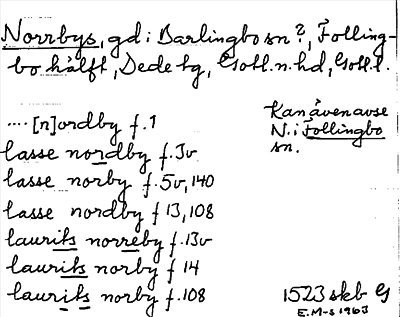 Norrbys, gd i Barlingbo sn?, Folling-
bo hälft, Dede tg, Gotl. n. hd, Gotl. l.
.... [n]ordby f. 1
lasse nordby f. 3v
lasse norby f. 5v, 140
lasse nordby f 13, 108
laurits norreby f. 13v
laurits norby f 14
laurits norby f. 108
Kan även avse
N. i Follingbo
sn.
1523 skb G
E. M-s 1963